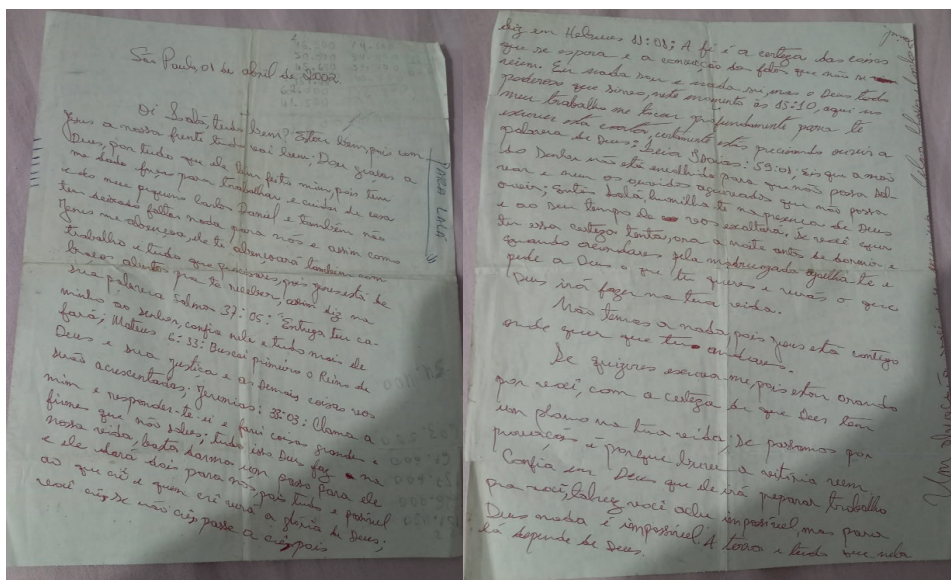 São Paulo, 01 de abril de 2002
Oi Lalá, tudo bem? Estou bem, pois com
Jesus a nossa frente tudo vai bem; Dou graças a
Deus, por tudo que ele tem feito mim, pois tem
me dado forças para trabalhar e cuidar de casa
e do meu pequeno Carlos Daniel e também não
tem deixado faltar nada para nós e assim como
Jesus me abençoa, ele te abençoará também com
trabalho e tudo que precisares, pois Jesus está de
braços abertos pra te receber, assim diz na
sua palavra Salmos 37:05: Entrega teu ca-
minho ao senhor, confia nele e tudo mais ele
fará; Mateus 6:33: Buscai primeiro o Reino de
Deus e sua justiça e as demais coisas vos
serão acrescentadas; Jeremias: 33:03: Clama a
mim e responder-te-ei e farei coisas grandes e
firmes que não sabes; tudo isso Deus faz na
nossa vida, basta darmos um passo para ele
e ele dará dois para nós, pois tudo é possível
ao que crê e quem crê verá a glória de Deus;
você crê, se não crê, passe a crê, pois
PARA LALÁ
diz em Hebreus 11:01; A fé é a certeza das coisas
que se espera e a convicção de fatos que não se
veem. Eu nada sou e nada sei, mas o Deus todo
poderoso que sirvo, neste momento às 15:10, aqui no
meu trabalho me tocar profundamente para te
escrever esta carta, certamente estás precisando ouvir a
palavra de Deus; Leia Isaías: 59:01: Eis que a mão
do Senhor não está encolhida para que não possa sal-
var e nem os ouvidos agravados que não possa
ouvir; Então Lalá, humilha-te na presença de Deus
e ao seu tempo ele vos exaltará. Se você quer
ter essa certeza tenta, ora a noite antes de dormir e
quando acordares pela madrugada ajoelha-te e
pede a Deus o que tu queres e verás o que
Deus irá fazer na tua vida.
Não temas a nada pois Jesus está contigo
onde quer que tu andares.
Se quizeres escreva-me, pois estou orando
por você, com a certeza de que Deus tem
um plano na tua vida; Se passamos por
provação é porque breve a vitória vem
Confia em Deus que ele irá preparar trabalho
pra você, talvez você ache impossível, mas para
Deus nada é impossível. A terra e tudo que nela
há depende de Deus.